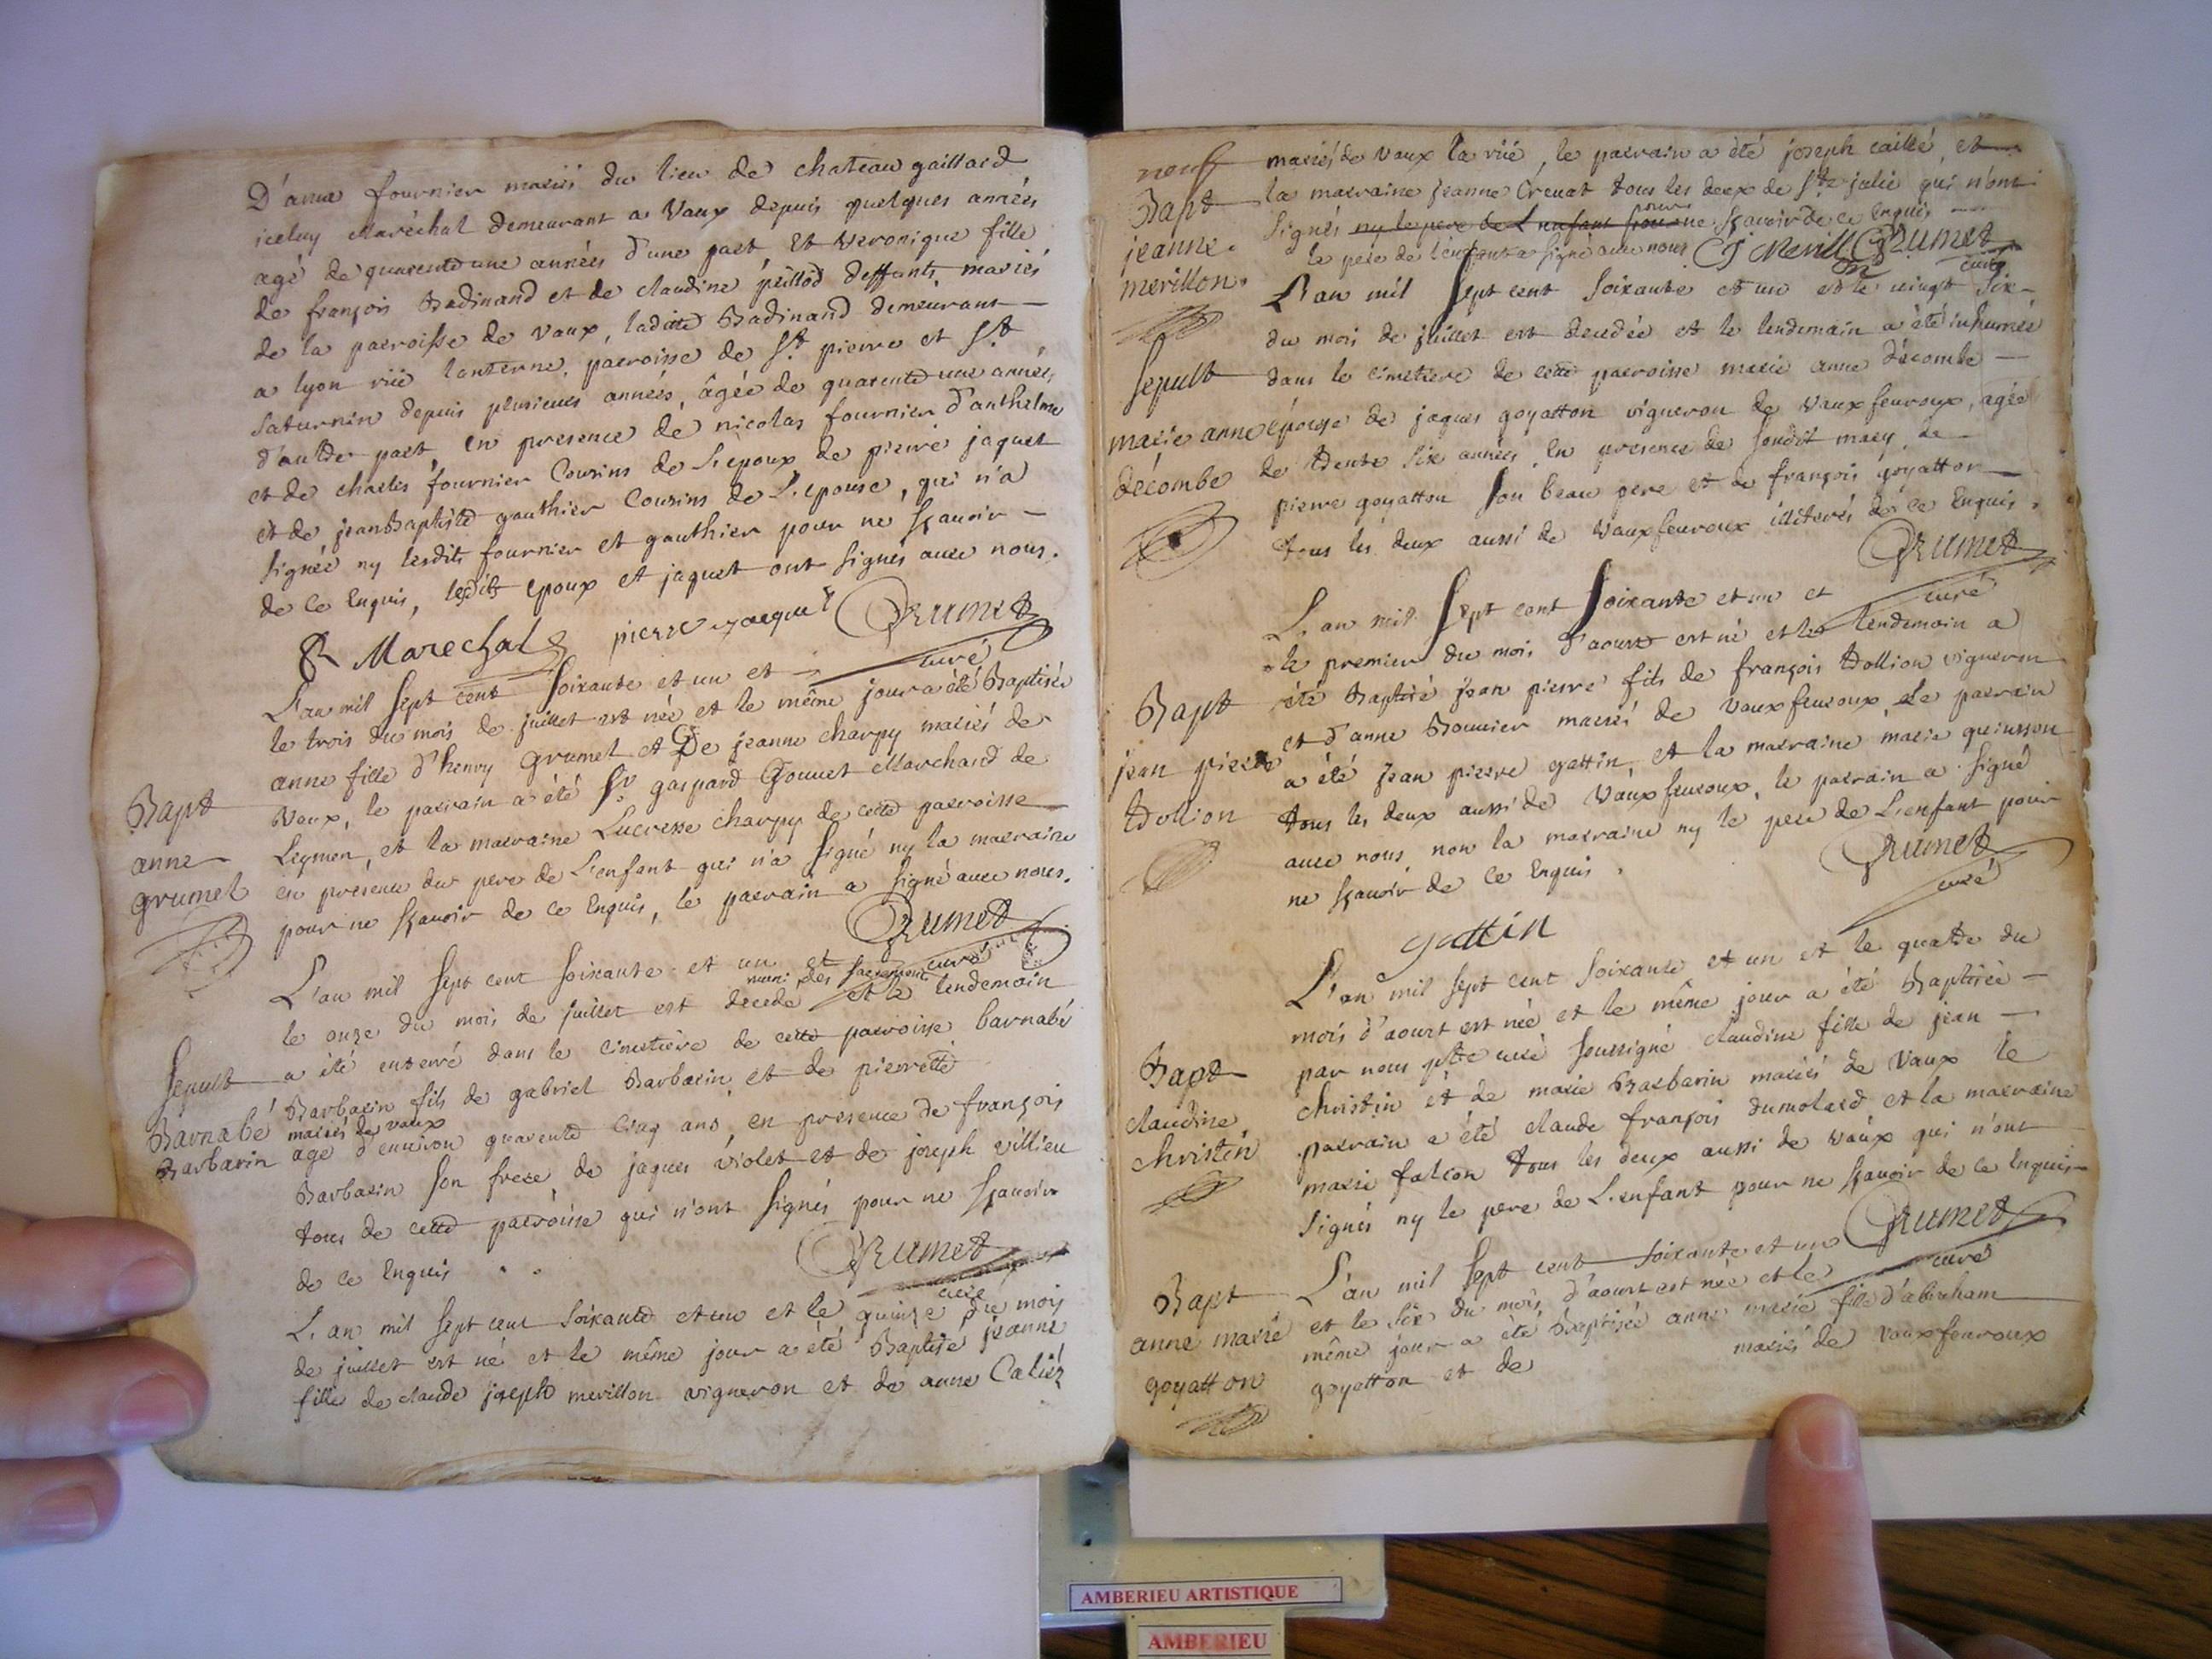 D'anne fournier mariés du lieu de chateau gaillard
iceluy Maréchal demeurant a Vaux depuis quelques années
agé de quarente une années d'une part, et veronique fille
de françois Badinand et de claudine peillod deffunts mariés
de la parroisse de vaux, ladite Badinand demeurant
a lyon rüe lanterne, parroisse de St pierre et St
saturnin depuis plusieurs années, âgée de quarente une années
d'autre part, en presence de nicolas fournier d'anthelme
et de charles fournier Cousins de L'epoux de pierre jaquet
et de jean Baptiste gauthier Cousins de L'epouse, qui n'a
signée ny lesdits fournier et gauthier pour ne sçauoir
de ce Enquis, lesdits epoux et jaquet ont signés auec nous.
Marechal pierre jaquet Grumet
curé
L'an mil sept cent soixante et un et
le trois du mois de juillet est née et le même jour a été Baptisée
anne fille d'henry grumet et De jeanne charpy mariés de
Vaux, le parrain a été Sr gaspard Gonnet Marchand de
Leymen, et la marraine Lucresse charpy de cette parroisse
en presence du pere de L'enfant qui n'a signé ny la marraine
pour ne sçauoir de ce Enquis, le parrain a signé auec nous.
Grumet
curé
Bapt
anne
grumet
L'an mil sept cent soixante et un et
muni des sacrements
le onze du mois de juillet est decedé et le lendemain
a été enterré dans le cimetière de cette parroisse barnabé
Barbarin fils de gabriel Barbarin et de pierrette
mariés de vaux
agé d'enuiron quarente cinq ans, en presence de françois
Barbarin son frere de jaques violet et de joseph villieu
tous de cette parroisse qui n'ont signés pour ne sçauoir
de ce Enquis
Grumet
curé
Sepult
Barnabé
Barbarin
L'an mil sept cent soixante et un et le quinze du mois
de juillet est né et le même jour a été Baptisé jeanne
fille de claude joseph merillon vigneron et de anne
neuf
Bapt
jeanne
merillon
mariés de vaux la rüe, le parrain a été joseph caillé, et
la marraine jeanne Creuat tous les deux de Ste julie qui n'ont
signés ny le pere de L'enfant pour ne sçauoir de ce Enquis
le pere de l'enfant a signé auec nous Merill Grumet
curé
L'an mil sept cent soixante et un et le vingt six
du mois de juillet est decedée et le lendemain a été inhumée
dans le cimetiere de cette parroisse marie anne décombe
épouse de jaques goyatton vigneron de vaux feuroux, agée
de trente six années, en presence de sondit mary, de
pierre goyatton son beau pere et de françois goyatton
tous les deux aussi de vaux feuroux illiterés de ce Enquis.
Grumet
curé
Sepult
marie anne
décombe
L'an mil sept cent soixante et un et
le premier du mois d'aoust est né et le lendemain a
été Baptisé jean pierre fils de françois tdollion vigneron
et d'anne Bouuier mariés de vaux feuroux, le parrain
a été jean pierre gattin, et la marraine marie quinsson
tous les deux aussi de vaux feuroux, le parrain a signé
auec nous, non la marraine ny le pere de L'enfant pour
ne sçauoir de ce Enquis.
Grumet
curé
gattin
Bapt
jean pierre
tdollion
L'an mil sept cent soixante et un et le quatre du
mois d'aoust est née et le même jour a été Baptisée
par nous ptre curé soussigné claudine fille de jean
christin et de marie Barbarin mariés de Vaux le
parrain a été claude françois dumolard et la marraine
marie falcon tous les deux aussi de vaux qui n'ont
signés ny le pere de L'enfant pour ne sçauoir de ce Enquis
Grumet
curé
Bapt
claudine
christin
L'an mil sept cent soixante et un
et le six du mois d'aoust est née et le
même jour a été Baptisée anne marie fille d'abraham
goyatton et de mariés de vaux feuroux
Bapt
anne marie
goyatton
AMBERIEU ARTISTIQUE
AMBERIEU